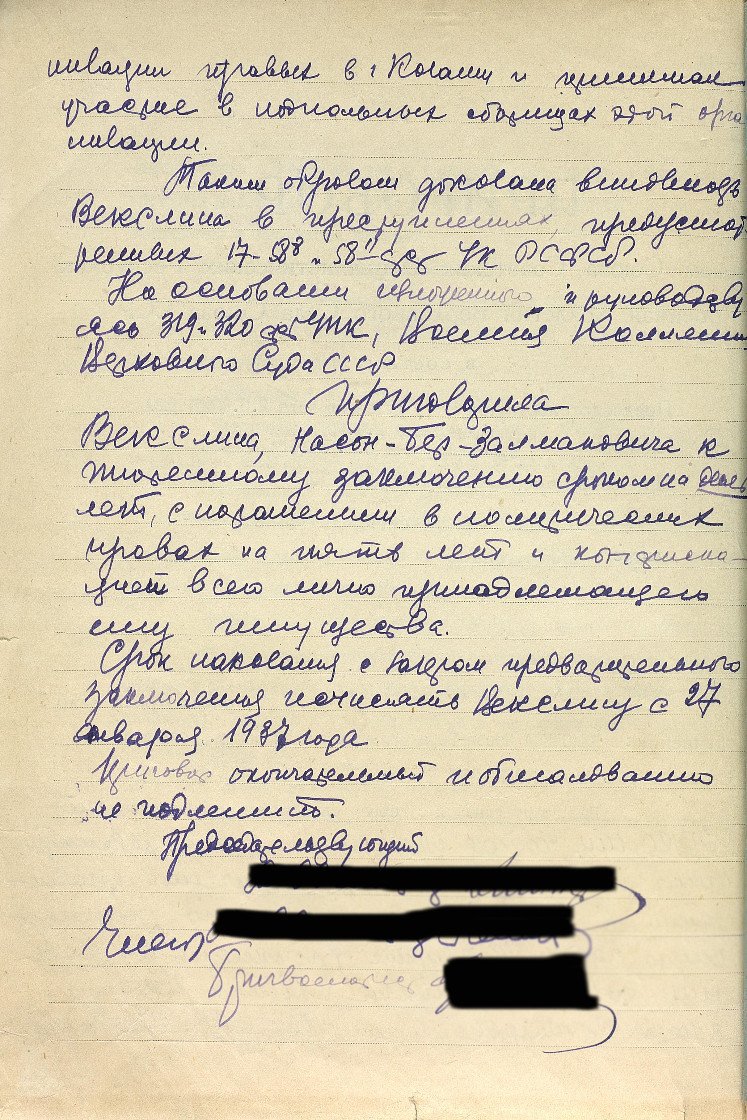 низации правых в г Казани и принимал
участие в подпольных сборищах этой орга
низации.
Таким образом доказана виновность
Векслина в преступлениях, предусмот
ренных 17-58⁸ и 58¹¹ ст УК РСФСР.
На основании изложенного и руководству
ясь 319 и 320 ст УПК, Военная Коллегия
Верховного Суда СССР
Приговорила
Векслина, Насон-Бер-Залмановича к
тюремному заключению сроком на десять
лет, с поражением в политических
правах на пять лет и конфиска-
цией всего лично принадлежащего
ему имущества.
Срок наказания с зачетом предварительного
заключения исчислять Векслину с 27
января 1937 года
Приговор окончательный и обжалованию
не подлежит.
Председательствующий
Члены